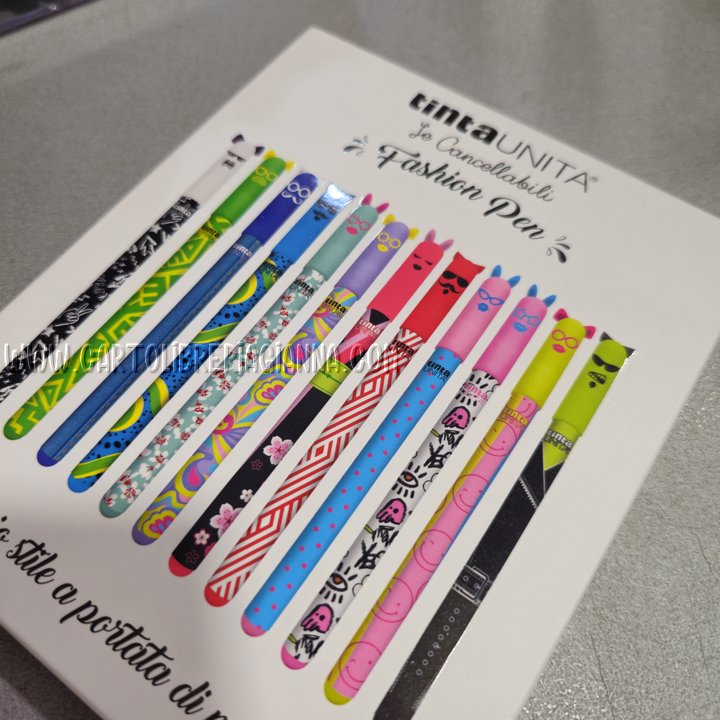 tintaUNITA®
Le Cancellabili
Fashion Pen
WWW.CARTOLIBRERIAGIANNA.COM
tinta
UNITA
tinta
UNITA
tinta
tinta
tinta
stile a portata di